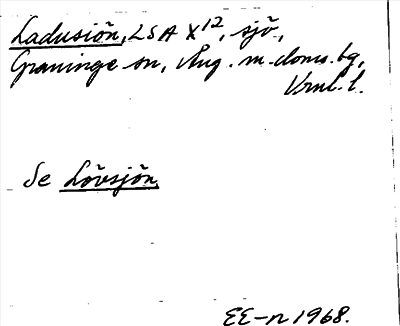 Ladusjön, LSA X12, sjö,
Graninge sn, Ång. m. doms.bg,
Vrnl. l.
Se Lövsjön
EE-n 1968.